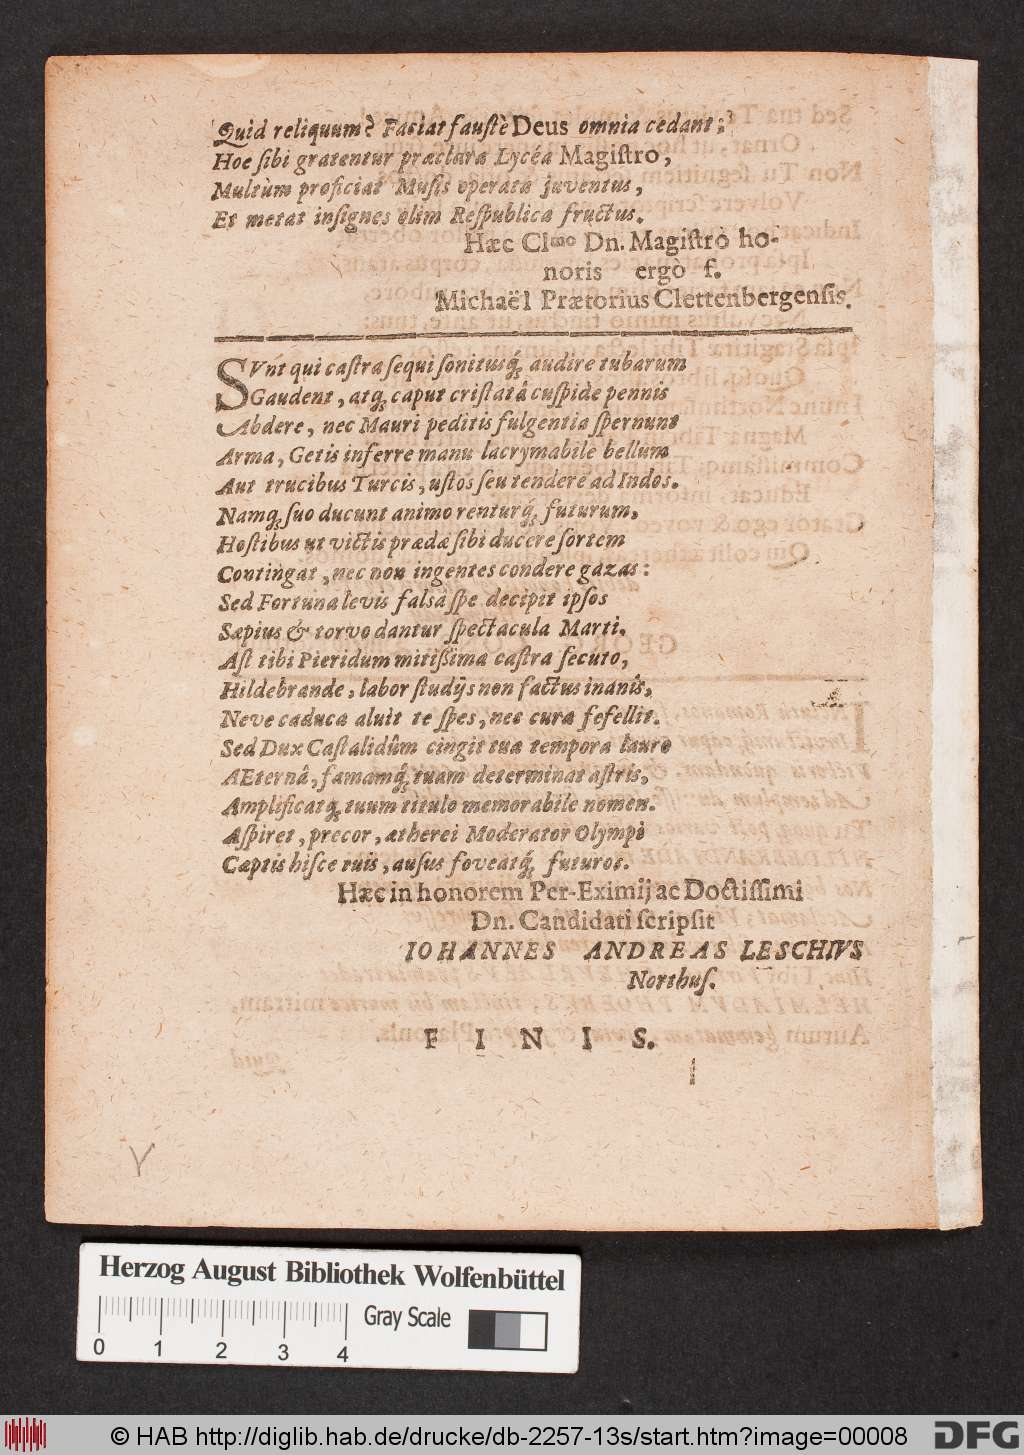 Quid reliquum? Faciat faustè Deus omnia cedant;
Hoc sibi gratentur præclara Lycéa Magistro,
Multùm proficiat Musis operata juventus,
Et metat insignes olim Respublica fructus.
Hæc Clᵐᵒ Dn. Magistro ho-
noris ergò f.
Michaël Prætorius Clettenbergensis.
SVnt qui castra sequi sonitusq; audire tubarum
Gaudent, atq; caput cristatâ cuspide pennis
Abdere, nec Mauri peditis fulgentia spernunt
Arma, Getis inferre manu lacrymabile bellum
Aut trucibus Turcis, ustos seu tendere ad Indos.
Namq; suo ducunt animo renturq; futurum,
Hostibus ut victis prædæ sibi ducere sortem
Contingat, nec non ingentes condere gazas:
Sed Fortuna levis falsâ spe decipit ipsos
Sæpius & torvo dantur spectacula Marti.
Ast tibi Pieridum mitissima castra secuto,
Hildebrande, labor studijs non factus inanis,
Neve caduca aluit te spes, nec cura fefellit.
Sed Dux Castalidûm cingit tua tempora lauro
AEternâ, famamq; tuam determinat astris,
Amplificatq; tuum titulo memorabile nomen.
Aspiret, precor, ætherei Moderator Olympi
Cæptis hisce tuis, ausus foveatq; futuros.
Hæc in honorem Per-Eximij ac Doctissimi
Dn. Candidati scripsit
IOHANNES ANDREAS LESCHIVS
Northus.
F I N I S.
Herzog August Bibliothek Wolfenbüttel
Gray Scale
0 1 2 3 4
© HAB http://diglib.hab.de/drucke/db-2257-13s/start.htm?image=00008
DFG